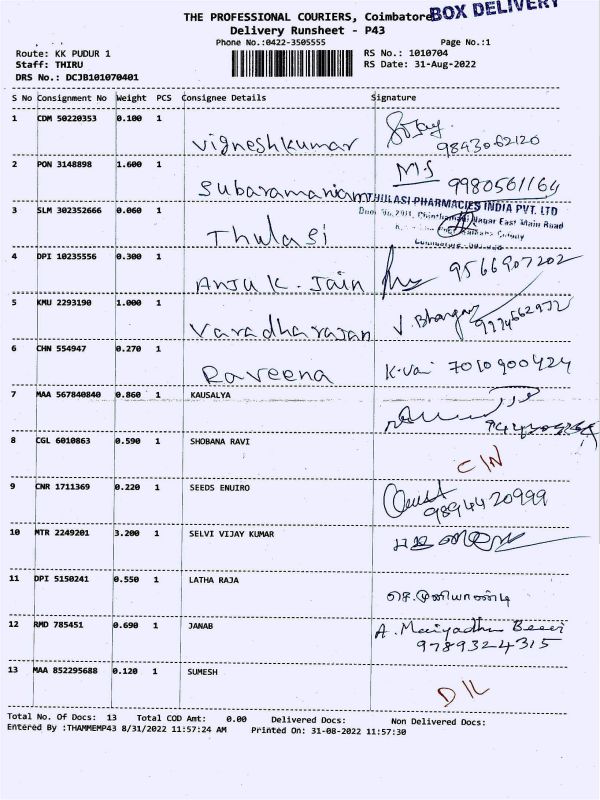 THE PROFESSIONAL COURIERS, Coimbatore
BOX DELIVERY
Delivery Runsheet - P43
Phone No.:0422-3505555
Page No.:1
Route: KK PUDUR 1
RS No.: 1010704
Staff: THIRU
RS Date: 31-Aug-2022
DRS No.: DCJB101070401
S No Consignment No Weight PCS Consignee Details Signature
1 CDM 50220353 0.100 1 Vigneshkumar
9843062120
2 PON 3148898 1.600 1 Subaramaniam M.S 9980561164
THULASI PHARMACIES INDIA PVT. LTD
3 SLM 302352666 0.060 1 Thulasi
Nagar East Main Road
4 DPI 10235556 0.300 1 Anju K. Jain 9566907202
5 KMU 2293190 1.000 1 Varadharajan
6 CHN 554947 0.270 1 Raveena 7010900424
7 MAA 567840840 0.860 1 KAUSALYA
8 CGL 6010863 0.590 1 SHOBANA RAVI
C/N
9 CNR 1711369 0.220 1 SEEDS ENUIRO
9894420999
10 MTR 2249201 3.200 1 SELVI VIJAY KUMAR
11 DPI 5150241 0.550 1 LATHA RAJA
செ.முனியாண்டி
12 RMD 785451 0.690 1 JANAB A.
9789324315
13 MAA 852295688 0.120 1 SUMESH
D/L
Total No. Of Docs: 13 Total COD Amt: 0.00 Delivered Docs: Non Delivered Docs:
Entered By :THAMMEMP43 8/31/2022 11:57:24 AM Printed On: 31-08-2022 11:57:30